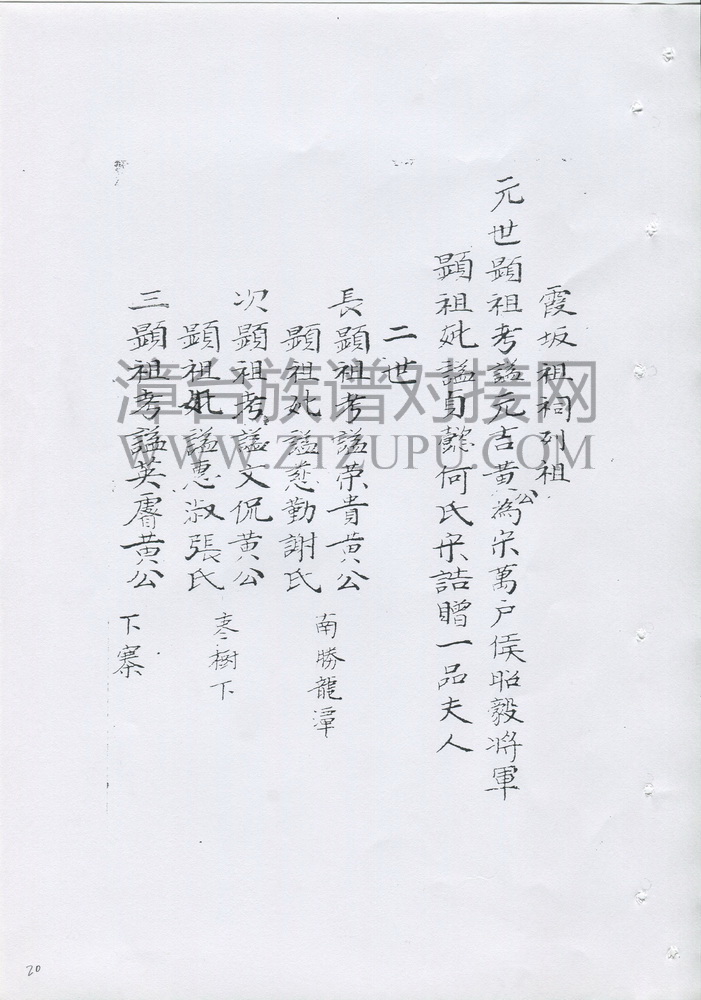 霞坂祖祠列祖
元世顕祖考謚元吉黄公為宋萬户侯昭毅将軍
顕祖妣謚貞懿何氏宋誥贈一品夫人
二世
長顕祖考謚荣貴黄公
南勝龍潭
顕祖妣謚慈勤謝氏
次顕祖考謚文侃黄公
枣樹下
顕祖妣謚惠淑張氏
三顕祖考謚英睿黄公
下寨
漳台族谱对接网
WWW.ZTZUPU.COM
20